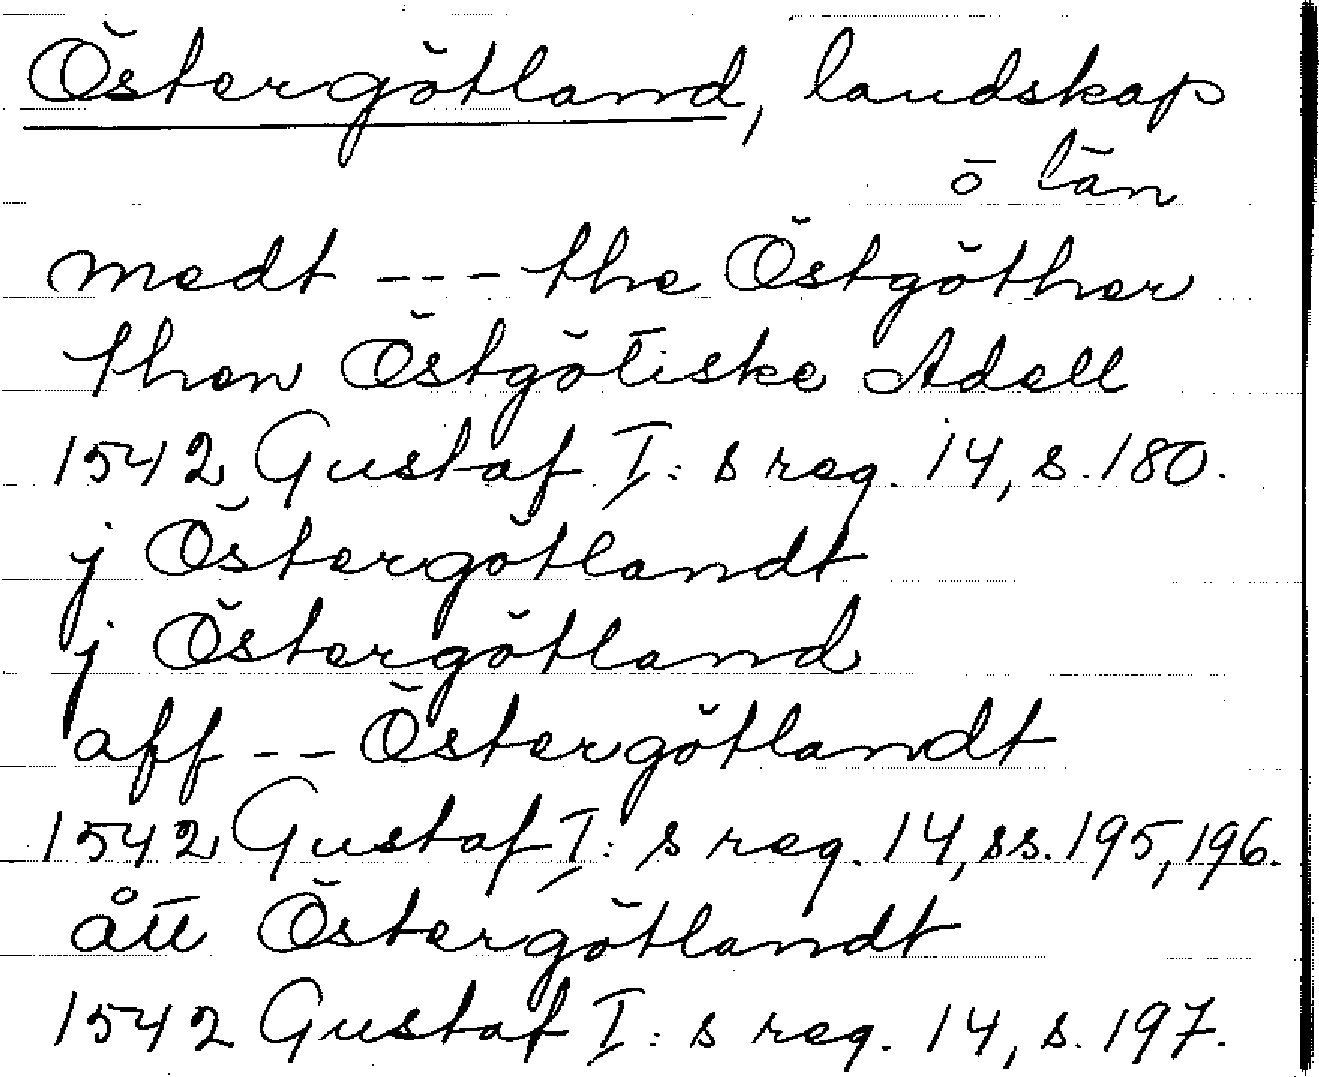 Östergötland, landskap
o län
medt --- the Östgöther
then Östgötiske Adell
1542 Gustaf I:s reg. 14, s. 180.
j Östergötlandt
j Östergötland
aff -- Östergötlandt
1542 Gustaf I:s reg. 14, ss. 195, 196.
ått Östergötlandt
1542 Gustaf I:s reg. 14, s. 197.